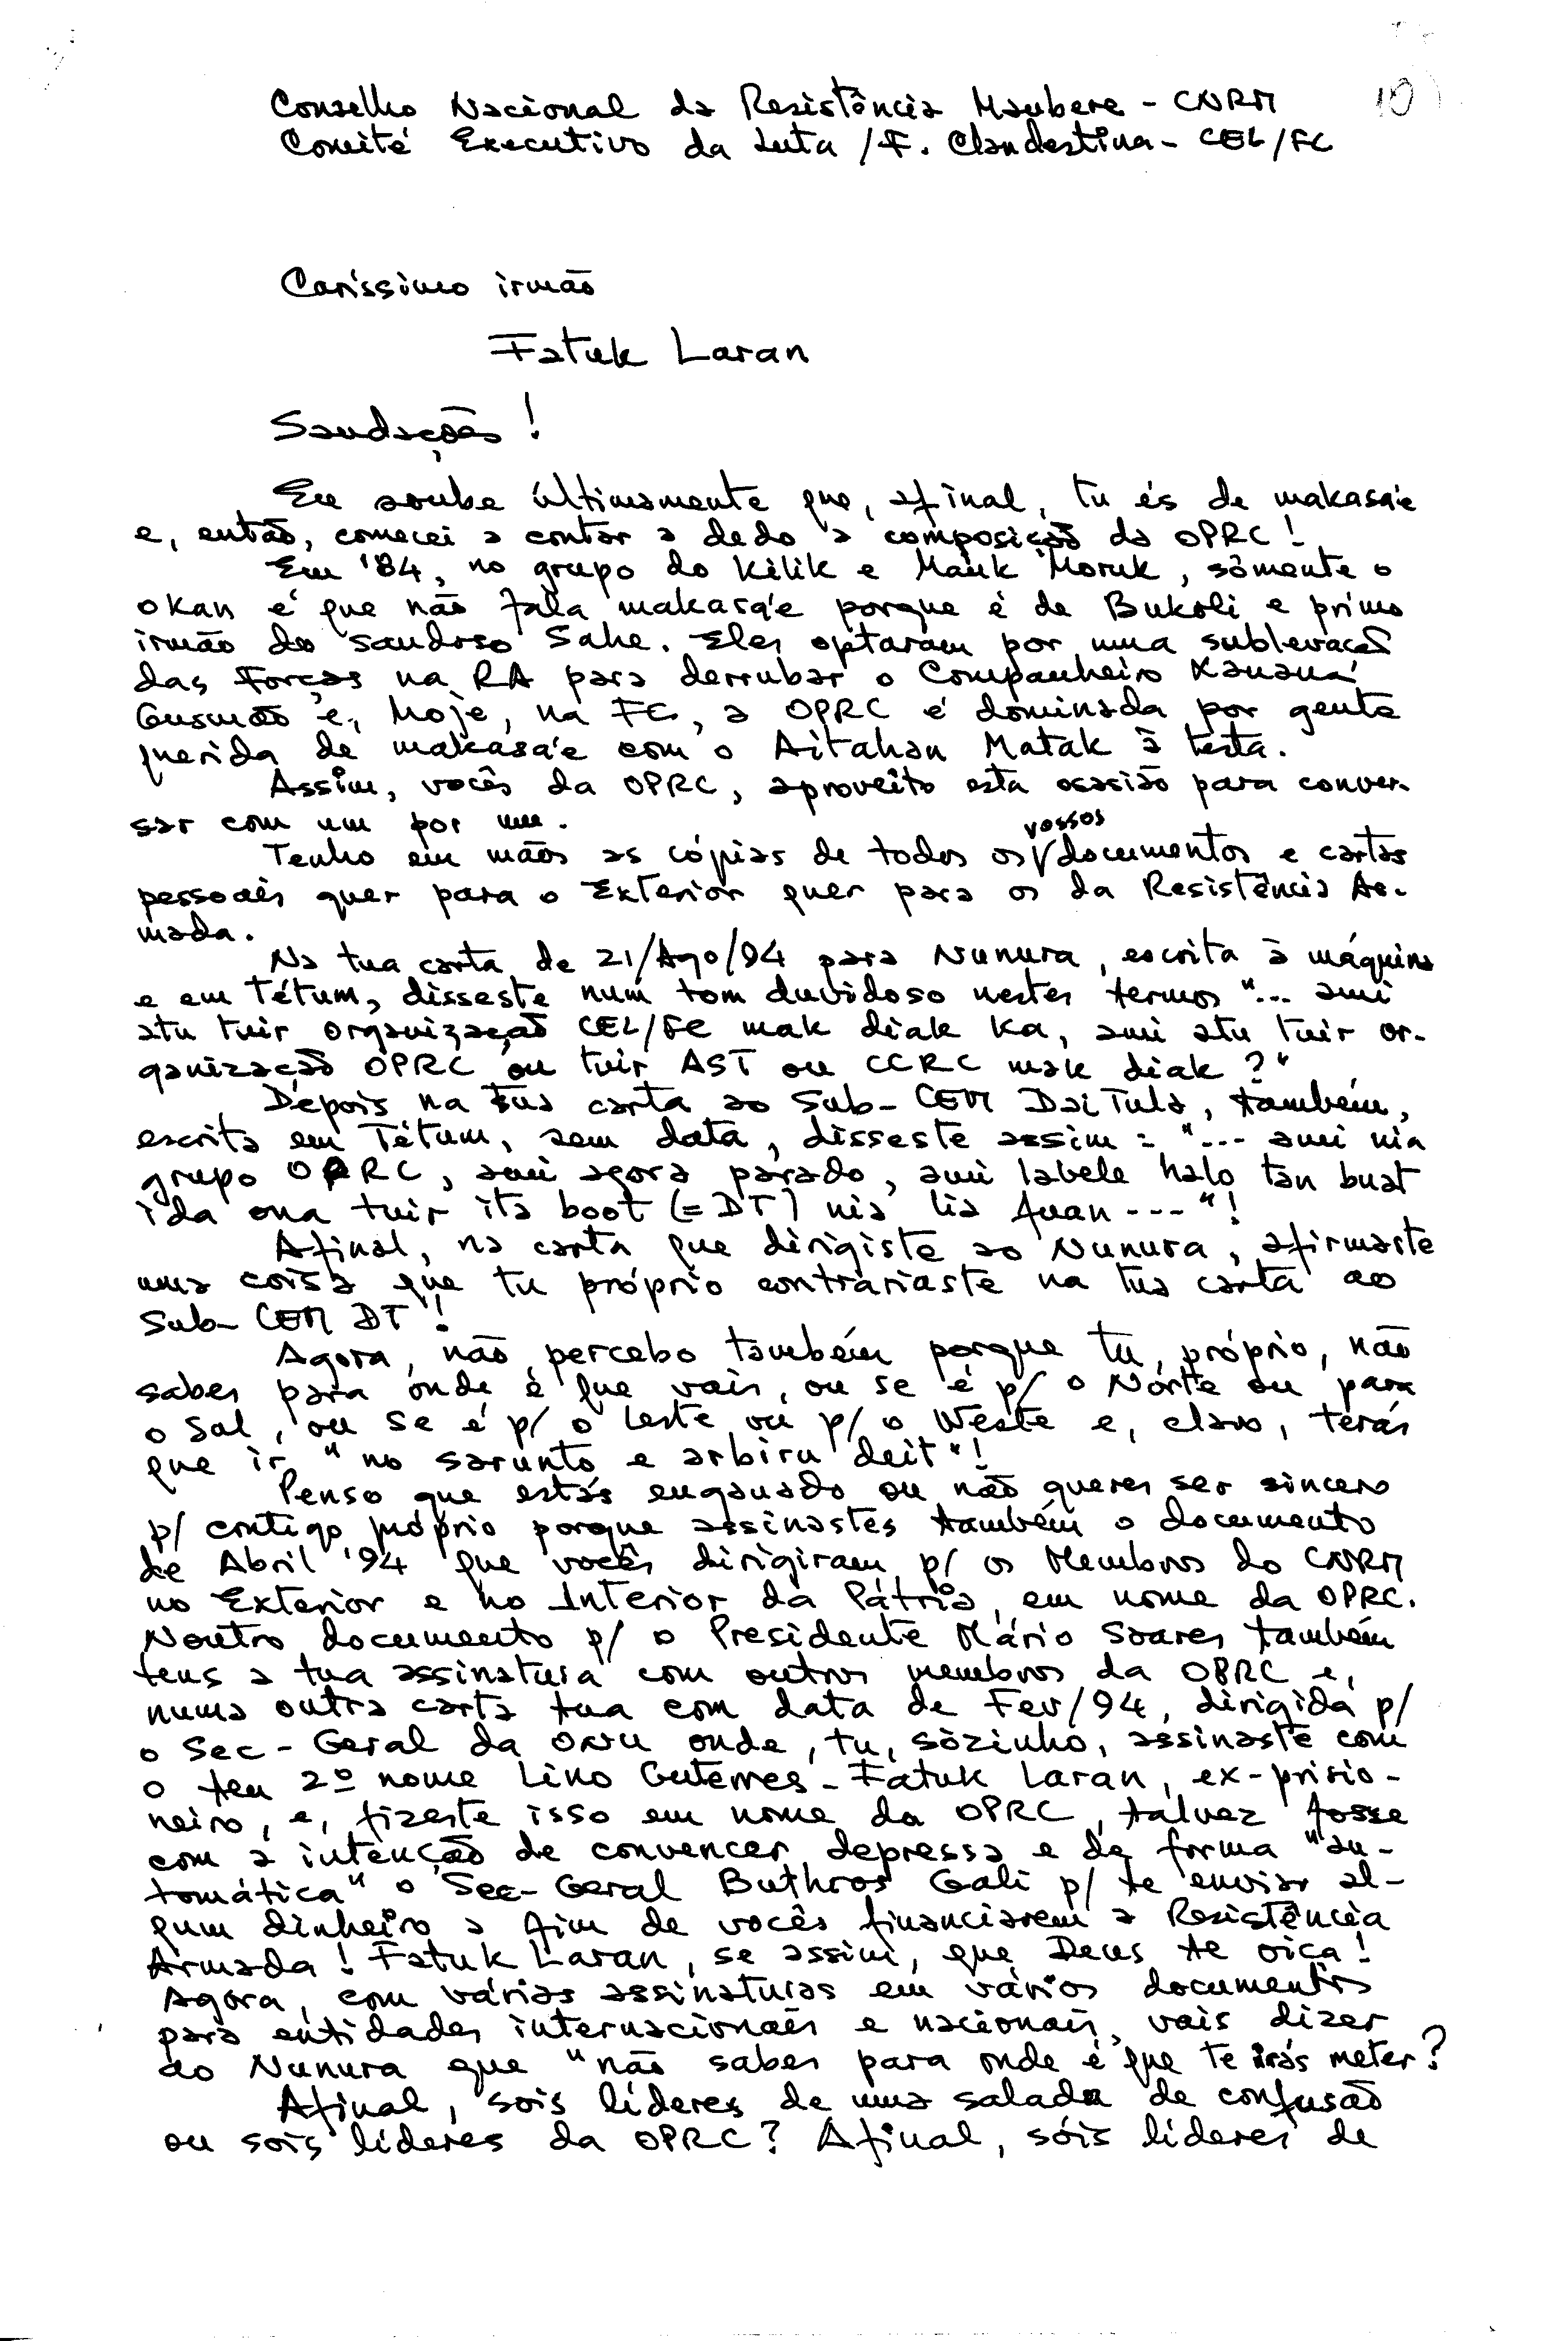 10
Conselho Nacional da Resistência Maubere - CNRM
Comité Executivo da Luta /F. Clandestina - CEL/FC
Caríssimo irmão
Fatuk Laran
Saudações !
Eu soube últimamente que, afinal, tu és de makasa'e
e, então, comecei a contar a dedo a composição da OPRC !
Em '84, no grupo do Kilik e Mauk Moruk, sòmente o
Okan é que não fala makasa'e porque é de Bukoli e primo
irmão do saudoso Sahe. Eles optaram por uma sublevação
das Forças na RA para derrubar o Companheiro Xanana
Gusmão e, hoje, na FC, a OPRC é dominada por gente
querida de makasa'e com o Aitahan Matak à testa.
Assim, vocês da OPRC, aproveito esta ocasião para conver-
sar com um por um.
Tenho em mãos as cópias de todos os vossos documentos e cartas
pessoais quer para o Exterior quer para os da Resistência Ar-
mada.
Na tua carta de 21/Ago/94 para Nunura, escrita à máquina
e em Tétum, disseste num tom duvidoso nestes termos "... ami
atu tuir organização CEL/FC mak diak ka, ami atu tuir or-
ganização OPRC ou tuir AST ou CCRC mak diak ?"
Depois na tua carta ao Sub-CEM Dai Tula, também,
escrita em Tétum, sem data, disseste assim : "... ami nia
grupo OPRC, ami agora parado, ami labele halo tan buat
ida ona tuir ita boot (=DT) nia lia fuan ---"!
Afinal, na carta que dirigiste ao Nunura, afirmaste
uma coisa que tu próprio contrariaste na tua carta ao
Sub-CEM DT !
Agora, não percebo também porque tu, próprio, não
sabes para onde é que vais, ou se é p/ o Norte ou para
o Sal, ou se é p/ o Leste ou p/ o Weste e, claro, terás
que ir "no sarunto e arbiru deit"!
Penso que estás enganado ou não queres ser sincero
p/ contigo próprio porque assinastes também o documento
de Abril '94 que vocês dirigiram p/ os Membros do CNRM
no Exterior e no Interior da Pátria, em nome da OPRC.
Noutro documento p/ o Presidente Mário Soares também
tens a tua assinatura com outros membros da OPRC e,
numa outra carta tua com data de Fev/94, dirigida p/
o Sec-Geral da ONU onde, tu, sòzinho, assinaste com
o teu 2º nome Lino Guterres - Fatuk Laran, ex-prisio-
neiro, e, fizeste isso em nome da OPRC, talvez fosse
com a intenção de convencer depressa e de forma "au-
tomática" o Sec-Geral Buthros Gali p/ te enviar al-
gum dinheiro a fim de vocês financiarem a Resistência
Armada ! Fatuk Laran, se assim, que Deus te oiça !
Agora, com várias assinaturas em vários documentos
para entidades internacionais e nacionais, vais dizer
ao Nunura que "não sabes para onde é que te irás meter ?
Afinal, sois líderes de uma salada de confusão
ou sois líderes da OPRC ? Afinal, sóis líderes de